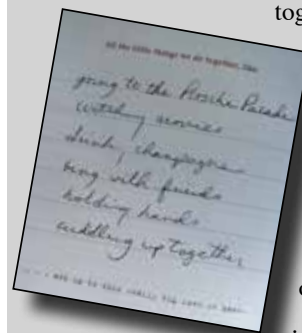 tog
All the little things we do together, like:
going to the Porsche Parade
watching movies
drink, champagne
being with friends
holding hands
cuddling up together